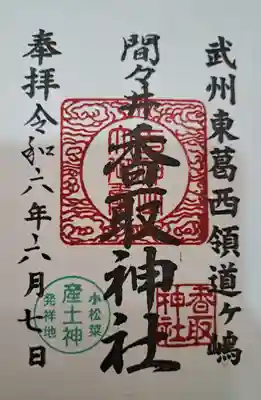 武州東葛西領道ヶ嶋
間々井
香取神社
奉拝令和六年六月七日
香取神社
小松菜
産土神
発祥地